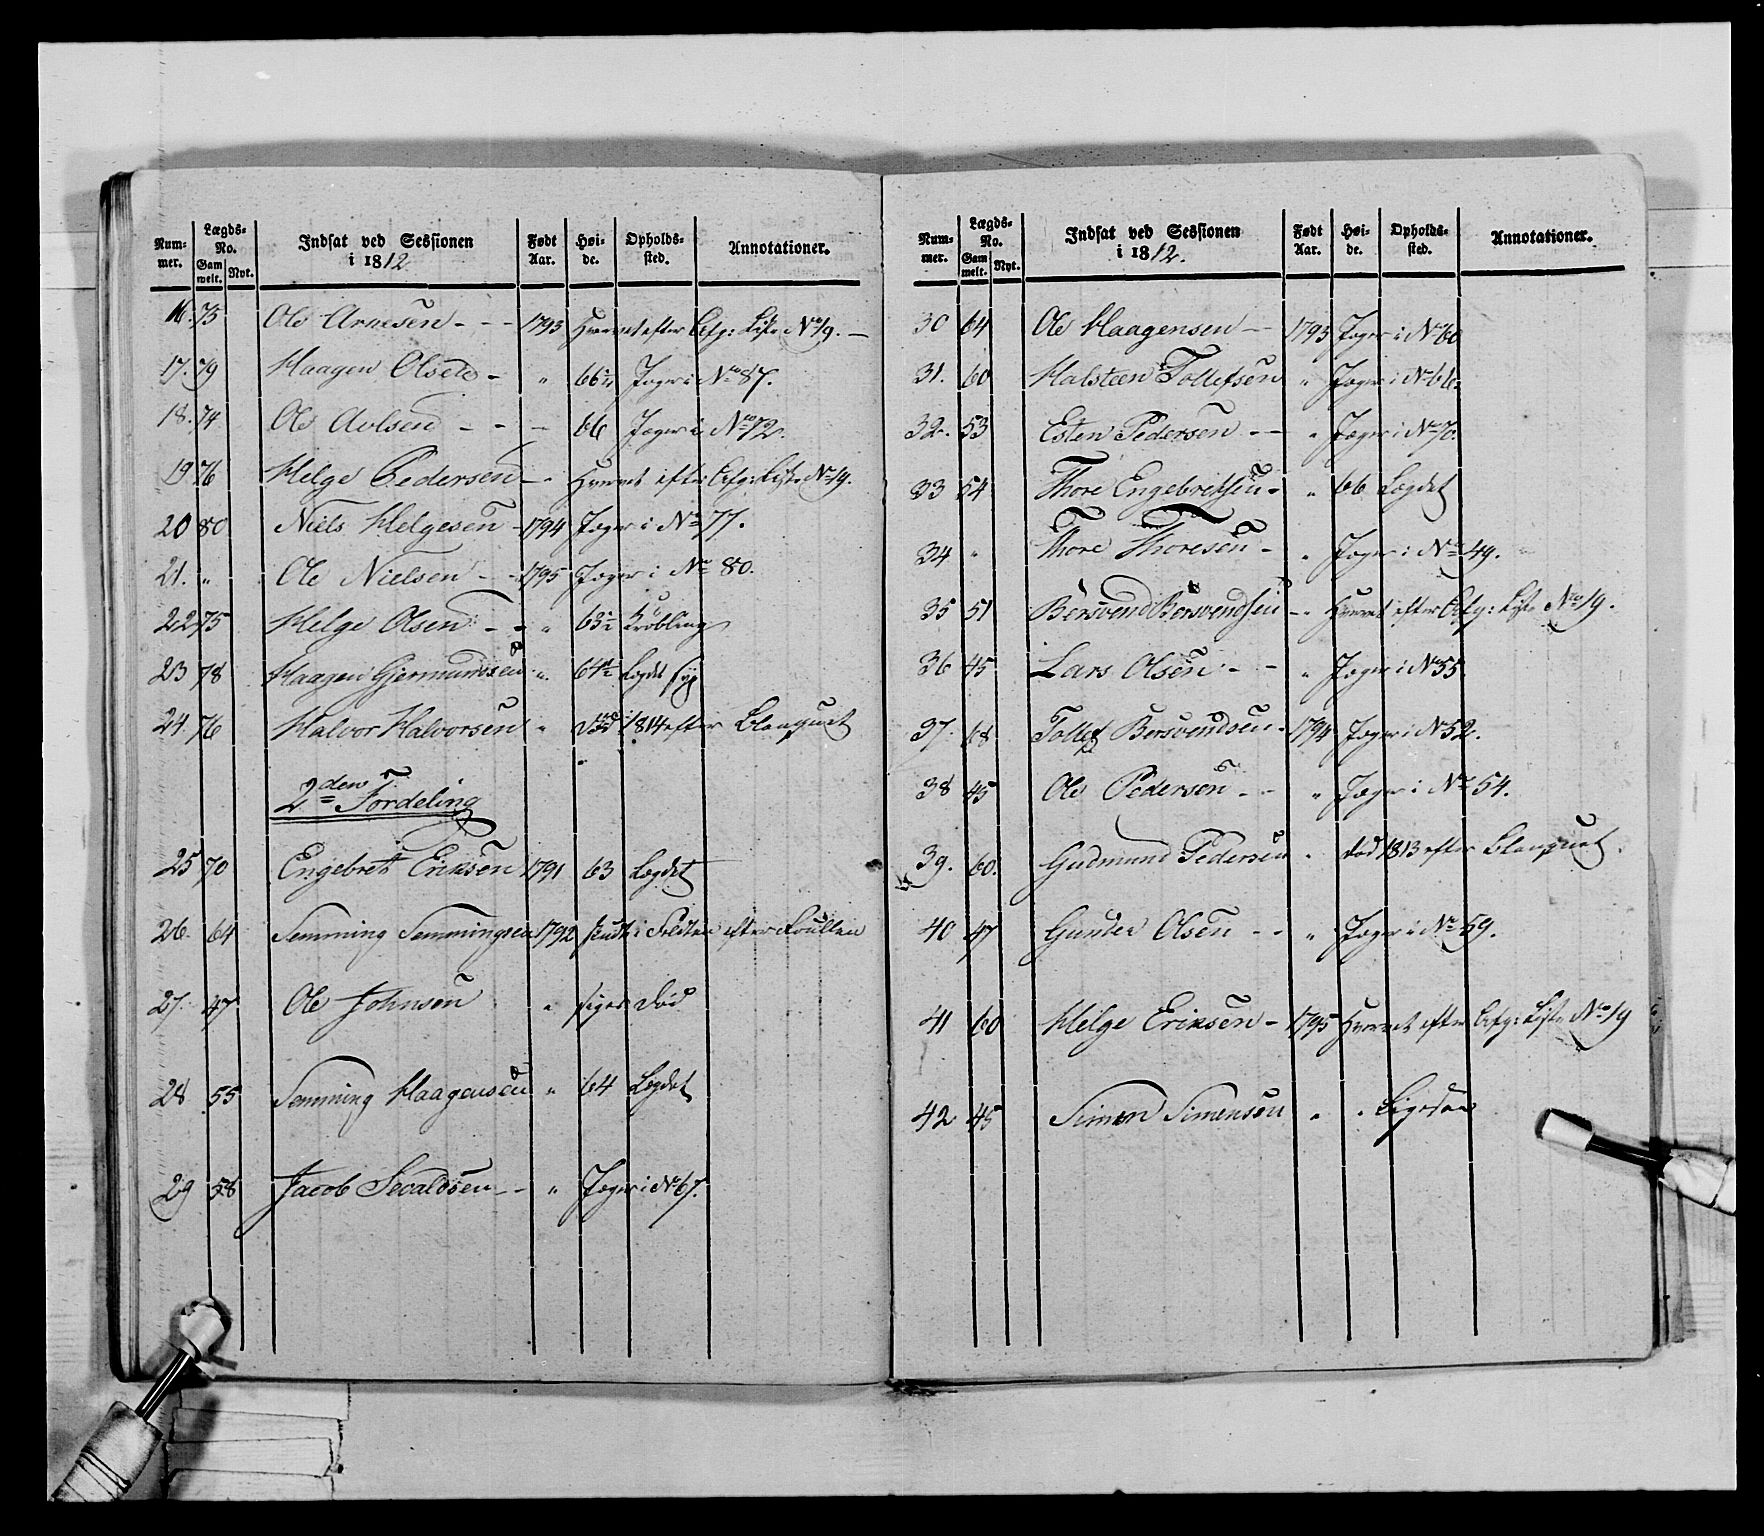 Num- mer. Lægds- No. Gam melt. Nyt. Indsat ved Sessionen i 1812. Født Aar. Høi- de. Opholds- sted. Annotationer.
16. 75 Ole Arnesen - - - 1793 Hvervet efter Afg: Liste No 19. -
17. 79 Haagen Olsen - " 66½ Jæger i No 87.
18. 74 Ole Avlsen - - - 66 Jæger i No 72.
19 76 Helge Pedersen - " Hvervet efter Afg: Liste No 19.
20 80 Niels Helgesen - 1794 Jæger i No 77.
21. " Ole Nielsen - - 1795 Jæger i No 80.
22 75 Helge Olsen - - " 63½ Krøbling
23 78 Haagen Gjermundsen " 64½ Lægdet syg
24. 76 Halvor Halvorsen " død 1814 efter Blanquet
2den Fordeling
25 70 Engebret Eriksen 1791 63 Lægdet
26. 64 Semming Semmingsen 1792 staaer i efter Roullen
27. 47 Ole Johnsen " siges død
28 55 Semming Haagensen " 64 Lægdet
29 58 Jacob Sevaldsen - - " Jæger i No 67.
Num- mer. Lægds- No. Gam melt. Nyt. Indsat ved Sessionen i 1812. Født Aar. Høi- de. Opholds- sted. Annotationer.
30 64 Ole Haagensen - - 1793 Jæger i No 60
31. 60 Halsteen Tollefsen " Jæger i No 66
32. 53 Esten Pedersen - - " Jæger i No 70.
33 54 Thore Engebretsen - " 66 Lægdet
34 " Thore Thoresen - " Jæger i No 49.
35 51 Bersvend Bersvendsen - " Hvervet efter Afg: Liste No 19.
36 45 Lars Olsen - - " Jæger i No 55
37. 68 Tollef Bersvendsen - 1794 Jæger i No 52.
38 45 Ole Pedersen - - " Jæger i No 54.
39. 60. Gudmund Pedersen " død 1813 efter Blanquet.
40 47 Gunder Olsen - - " Jæger i No 59.
41 60 Helge Eriksen - 1795 Hvervet efter Afg: Liste No 19
42 45 Simon Simensen " " Ligesaa